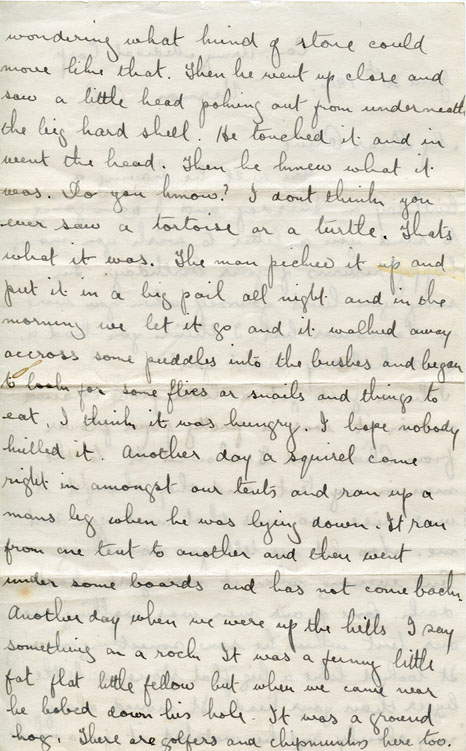 wondering what kind of stone could
move like that. Then he went up close and
saw a little head poking out from underneath
the big hard shell. He touched it and in
went the head. Then he knew what it
was. Do you know? I dont think you
ever saw a tortoise or a turtle. Thats
what it was. The man picked it up and
put it in a big pail all night and in the
morning we let it go and it walked away
accross some puddles into the bushes and began
to look for some flies or snails and things to
eat, I think it was hungry. I hope nobody
killed it. Another day a squirel come
right in amongst our tents and ran up a
mans leg when he was lying down. It ran
from one tent to another and then went
under some boards and has not come back.
Another day when we were up the hills I say
something on a rock It was a funny little
fat flat little fellow but when we came near
he bobed down his hole. It was a ground
hog. There are golfers and chipmunks here too.